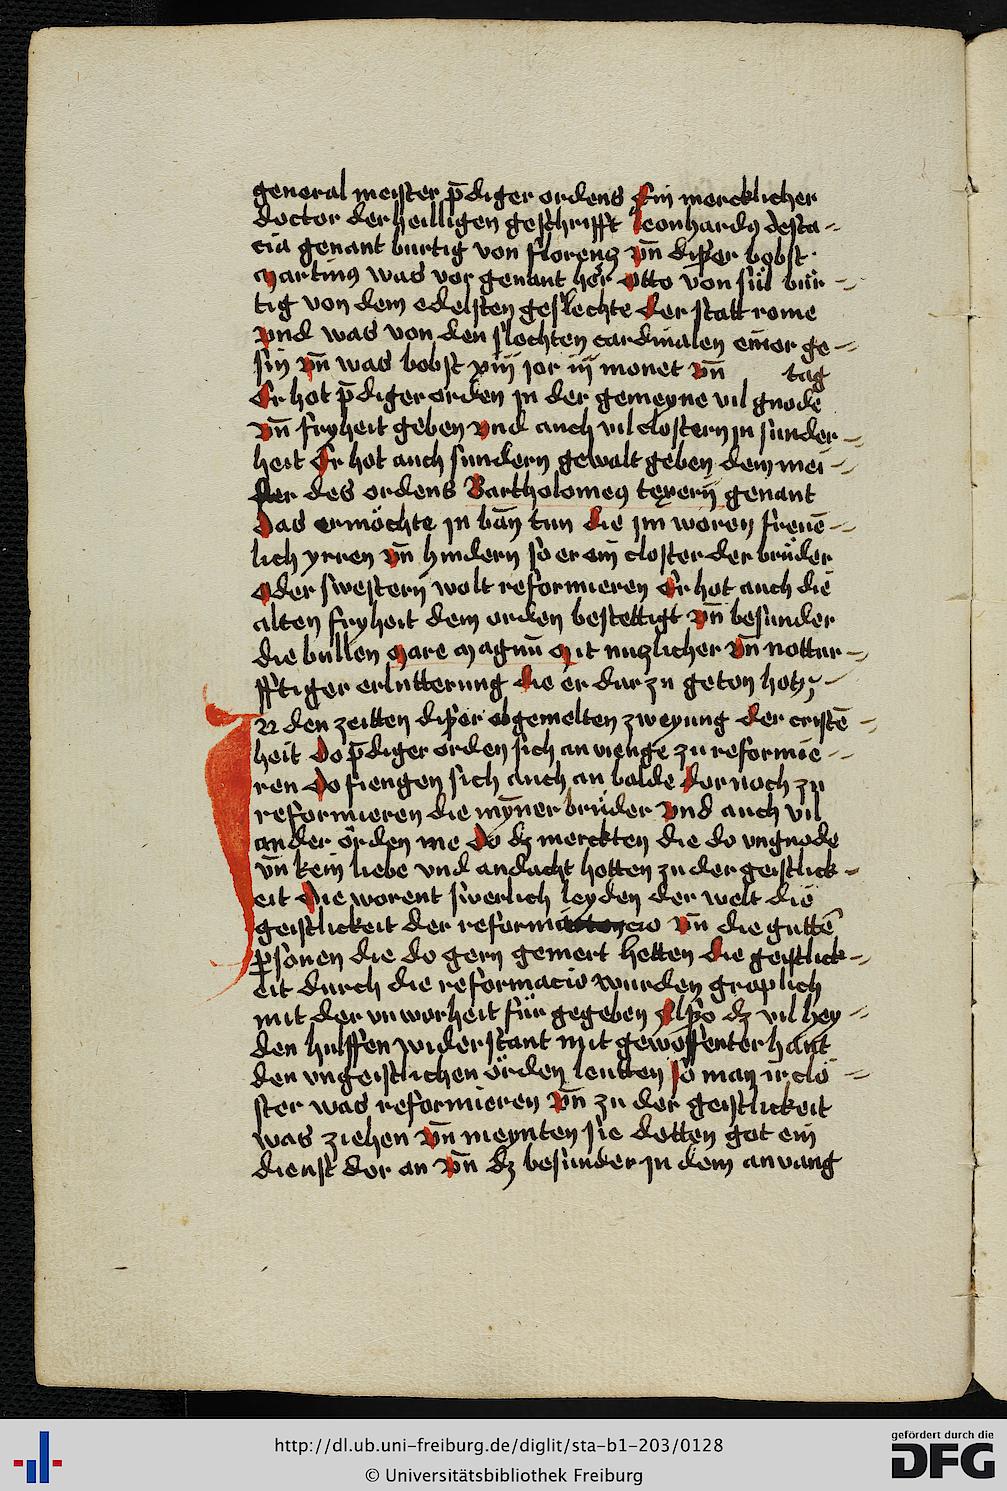 general meister p̄diger ordens Ein mercklicher
doctor der heilligen geschrifft leonhardꝰ desta-
cia genant burtig von florentz vn̄ dißer bobst
martinꝰ was vor genant her otto von sül bür-
tig von dem edelsten geslechte der statt rome
vnd was von den slechten cardinalen einer ge-
sin vn̄ was bobst xiij jor iij monet vn̄ tag
Er hot p̄diger orden jn der gemeyne vil gnodē
vn̄ fryheit geben vnd auch vil clostern jn sunder-
heit Er hot auch sundern gewalt geben dem mei-
ster des ordens Bartholomeꝰ texerij genant
das er möchte jn ban tun die jm woren freuē-
lich yrren vn̄ hindern so er ein closter der brüder
oder swestern wolt reformieren Er hot auch die
alten fryheit dem orden bestettigt vn̄ besunder
die bullen Mare Magnū Mit nutzlicher vn̄ nottur-
fftiger erlutterung die er dar zu geton hot
JN den zeitten dißer obgemelten zweyung der cristē-
heit Do p̄diger orden sich an vienge zu reformie-
ren do fiengen sich auch an balde dor noch zu
reformieren die mynner brüder vnd auch vil
ander örden me Do dz merckten die do vngnode
vn̄ kein liebe vnd andacht hotten zu der geistlick-
eit Die worent swerlich leyden der welt die
geistlickeit der reformacio vn̄ die guttē
ꝑsonen die do gern gemert hetten die geistlick-
eit durch die reformacio wurden groplich
mit der vnworheit für gegeben Alßo dz vil hey-
den hulffen widerstant mit gewoffenter hant
den vngeistlichen örden leutten so man ir clö-
ster was reformieren vn̄ zu der geistlickeit
was ziehen vn̄ meynten sie detten got ein
dienst dor an vn̄ dz besunder jn dem anvang
http://dl.ub.uni-freiburg.de/diglit/sta-b1-203/0128
© Universitätsbibliothek Freiburg
gefördert durch die
DFG